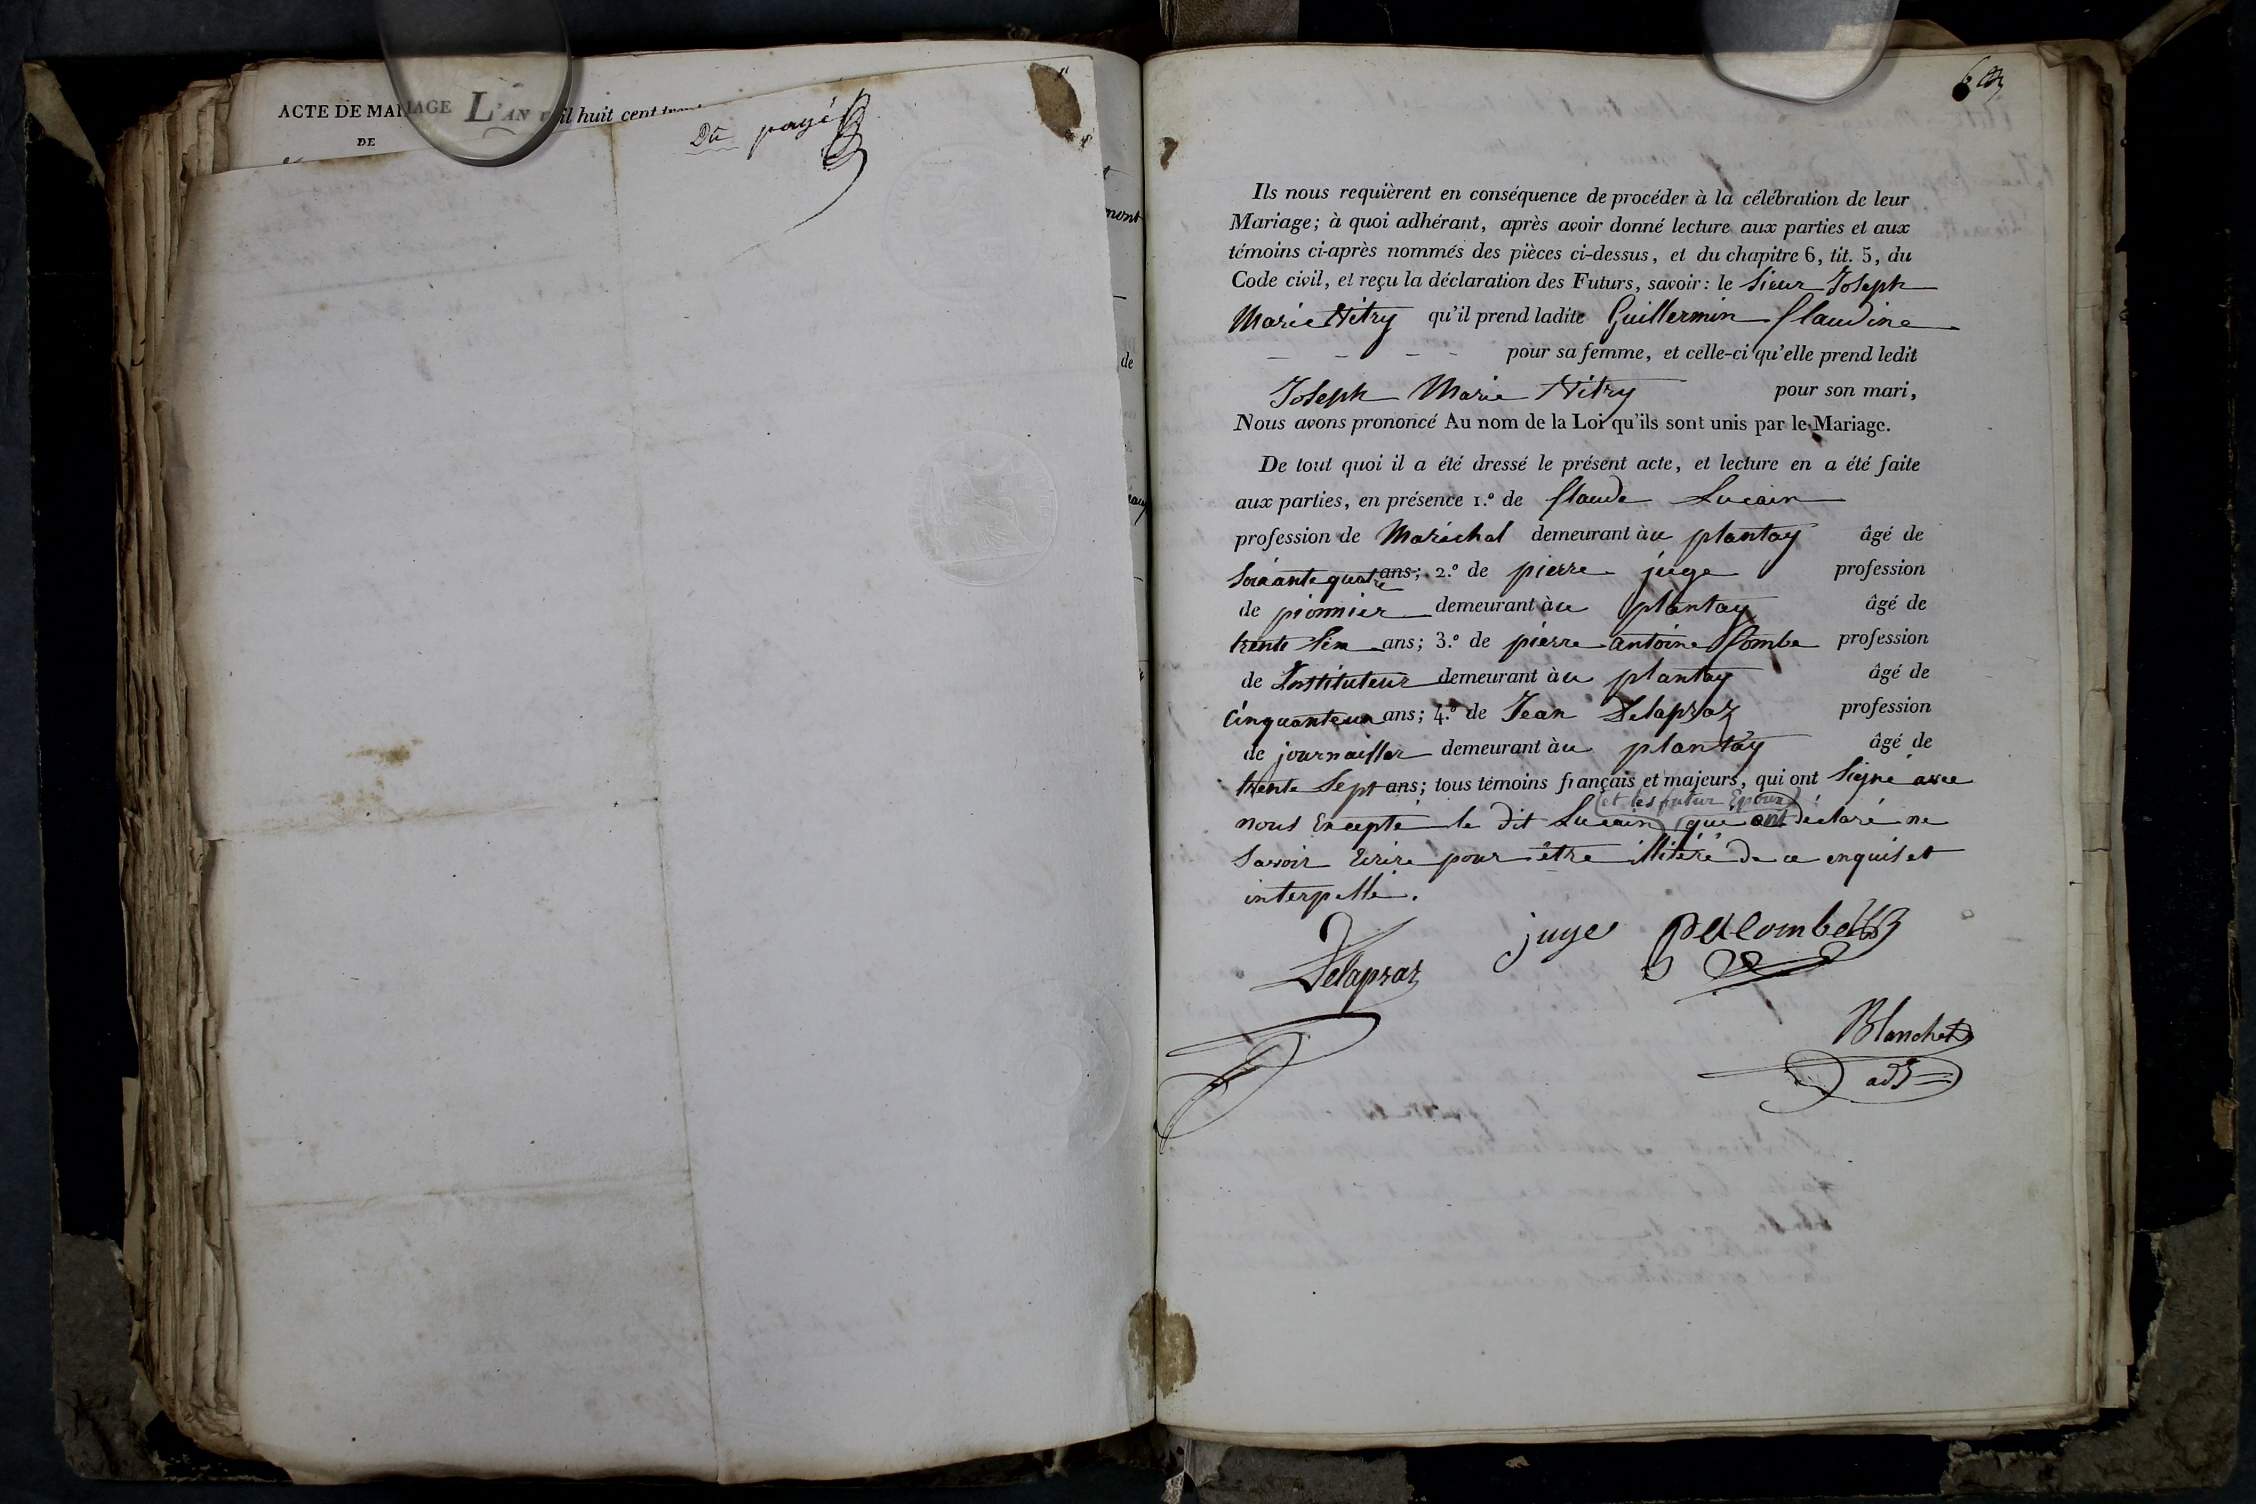 ACTE DE MARIAGE L'AN mil huit cent
DE
Dû payé
mont
de
Ils nous requièrent en conséquence de procéder à la célébration de leur
Mariage; à quoi adhérant, après avoir donné lecture aux parties et aux
témoins ci-après nommés des pièces ci-dessus, et du chapitre 6, tit. 5, du
Code civil, et reçu la déclaration des Futurs, savoir: le Sieur Joseph
Marie Vitry qu'il prend ladite Guillermin Claudine
pour sa femme, et celle-ci qu'elle prend ledit
Joseph Marie Vitry pour son mari,
Nous avons prononcé Au nom de la Loi qu'ils sont unis par le Mariage.
De tout quoi il a été dressé le présent acte, et lecture en a été faite
aux parties, en présence 1.º de Claude Lucain
profession de Maréchal demeurant àu plantay âgé de
Soixante quatre ans; 2.º de pierre juge profession
de pionnier demeurant àu plantay âgé de
trente Six ans; 3.º de pierre antoine Combe profession
de Instituteur demeurant àu plantay âgé de
Cinquanteun ans; 4.º de Jean Delapraz profession
de journailler demeurant àu plantay âgé de
trente Sept ans; tous témoins français et majeurs, qui ont Signé avec
(et les futur Epoux)
nous Excepté le dit Lucain qui ont déclaré ne
Savoir Ecrire pour être illiteré de ce enquis et
interpellé.
juge PAcombe
Delapraz
Blanchet
adj